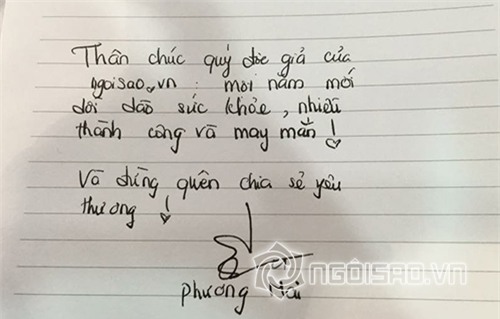 Thân chúc quý độc giả của
ngoisao.vn : một năm mới
dồi dào sức khỏe, nhiều
thành công và may mắn !
Và đừng quên chia sẻ yêu
thương !
Phương Mai
NGÔISAO.VN